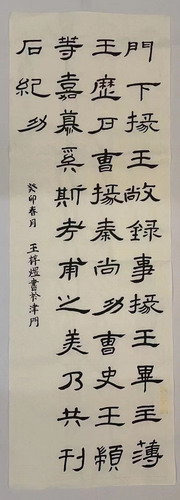 門下掾王敞錄事掾王畢主薄
王歷戶曹掾秦尚功曹史王顓
等嘉慕奚斯考甫之美乃共刊
石紀功
癸卯春月
王梓煜書於津門